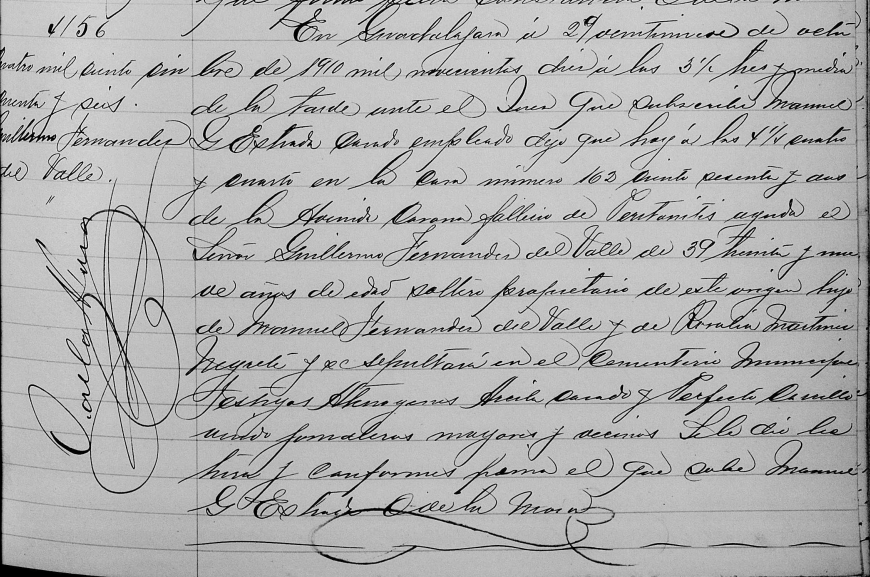 4156
cuatro mil ciento cin
cuenta y seis.
Guillermo Fernandez
del Valle.
En Guadalajara á 29 veintinueve de octu
bre de 1910 mil novecientos diez á las 3½ tres y media
de la tarde ante el Juez que subscribe Manuel
G Estrada casado empleado dijo que hoy á las 4¼ cuatro
y cuarto en la casa número 162 ciento sesenta y dos
de la Avenida Corona falleció de Peritonitis aguda el
Señor Guillermo Fernandez del Valle de 39 treinta y nue
ve años de edad soltero propietario de este origen hijo
de Manuel Fernandez del Valle y de Rosalia Martinez
Negrete y se sepultará en el Cementerio Municipal
Testigos Atenogenes Arcila casado y Perfecto Carrillo
viudo jornaleros mayores y vecinos Se le dió lec
tura y conformes firma el que sabe Manuel
G Estrada C de la Mora